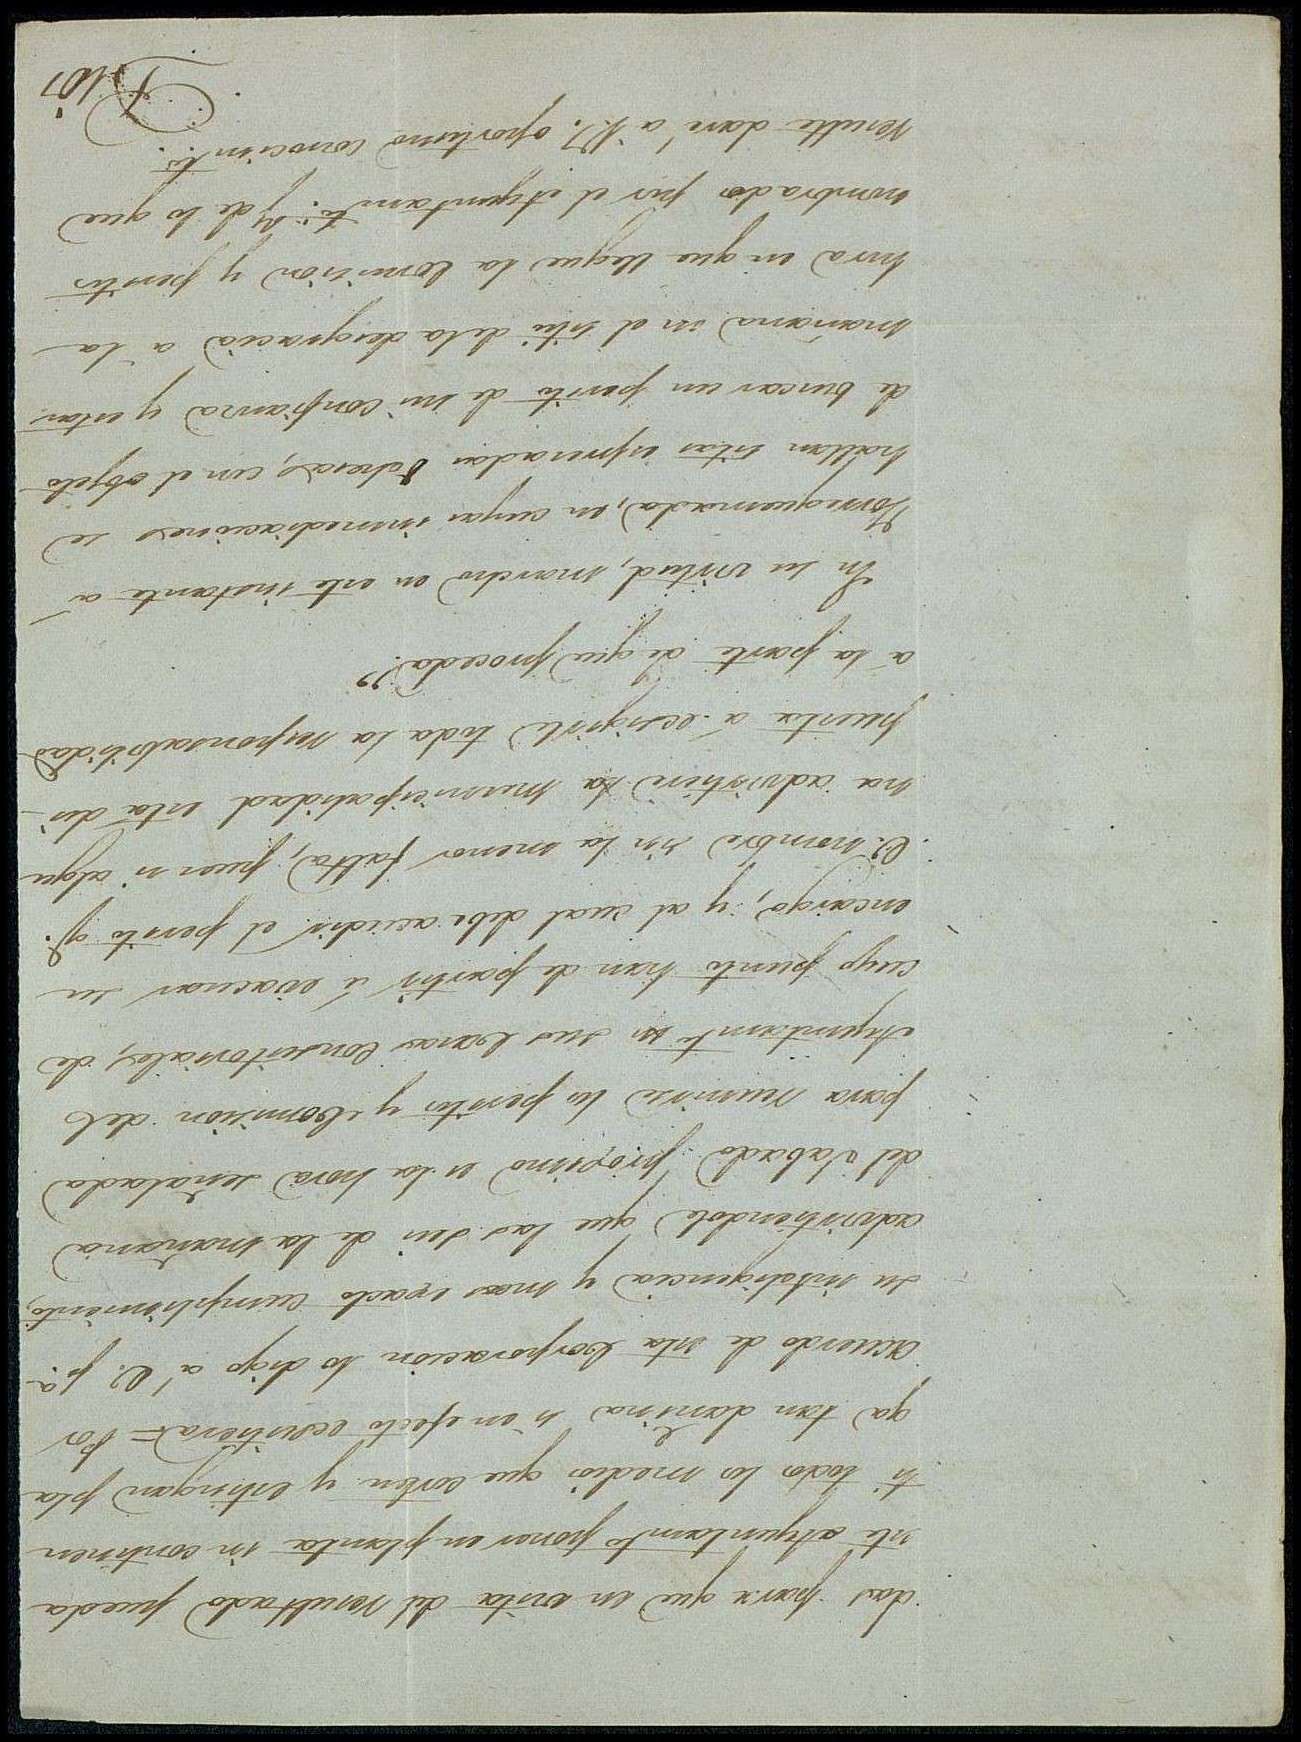 das para que en vista del resultado pueda
este Ayuntamto. poner en planta in continen
ti todos los medios que corten y estingan pla
ga tan dañina si en efecto ecsistiera = Por
acuerdo de esta Corporacion lo digo a V. pa.
su inteligencia y mas exacto cumplimiento,
advirtiendole que las seis de la mañana
del Sabado proximo es la hora señalada
para reunirse los peritos y Comision del
Ayuntamto. en sus Casas Consistoriales, de
cuyo punto han de partir á evacuar su
encargo, y al cual debe acudir el perito q.
V. nombre sin la menor falta, pues si algu
na advirtiere la municipalidad está dis-
puesta á ecsigirle toda la responsabilidad
á la parte de que proceda."
En su virtud, marcho en este instante á
Torrequemada, en cuyas inmediaciones se
hallan sitas espresadas dehesas, con el objeto
de buscar un perito de mi confianza y estar
mañana en el sitio de la desgracia a la
hora en que llegue la Comision y peritos
nombrados por el Ayuntamto. Y de lo que
resulte daré a V. oportuno conocimto.